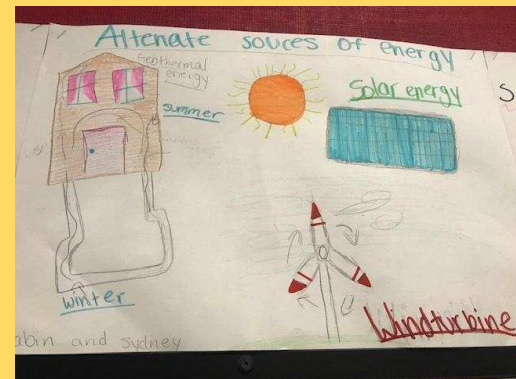 Altenate souces of energy
Geothermal
energy
summer
Solar energy
winter
Windturbine
abin and sydney
S